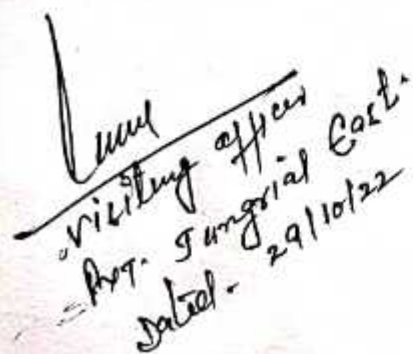 Visiting officer
Pyt. Jungrial East.
Dated - 29/10/22